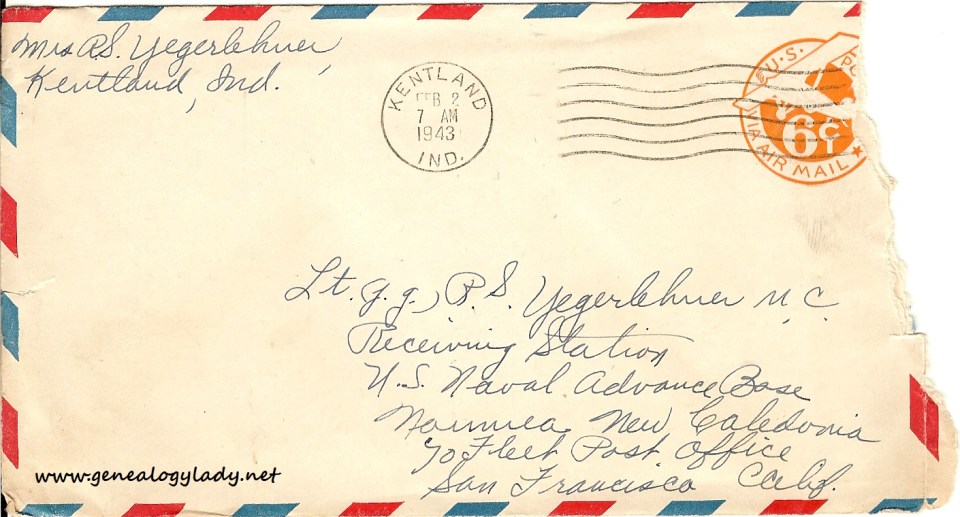 Mrs R.S. Yegerlehner,
Kentland, Ind.
KENTLAND
FEB 2
7 AM
1943
IND.
U.S. PO
6¢
VIA AIR MAIL
Lt. j.g., R.S. Yegerlehner M.C.
Receiving Station
U.S. Naval Advance Base
Noumea New Caledonia
℅ Fleet Post Office
San Francisco Calif.
www.genealogylady.net